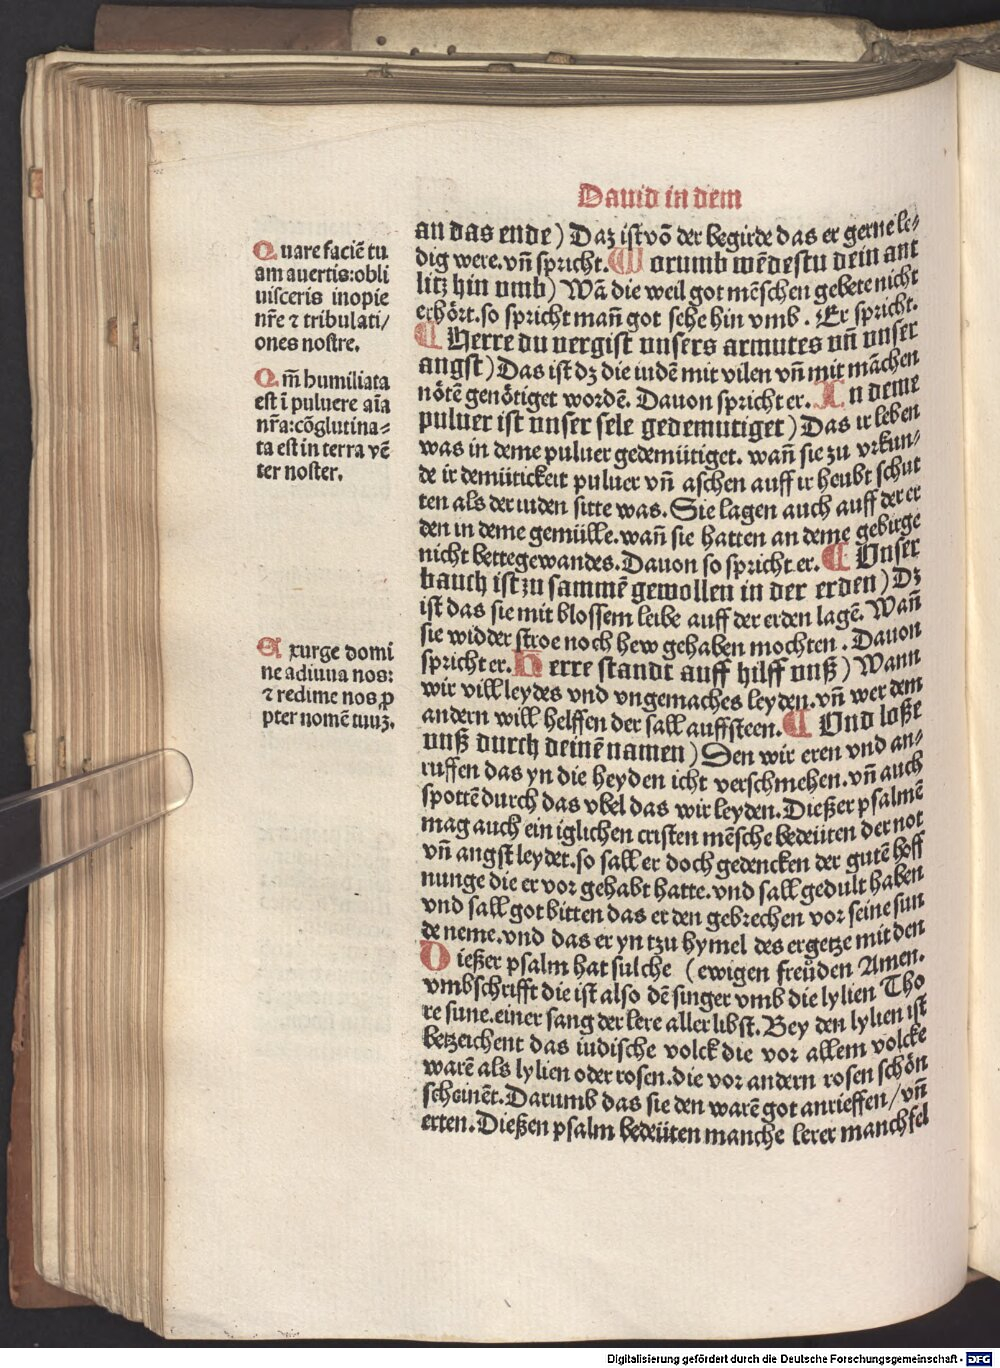 Dauid in dem
Quare faciē tu
am auertis:obli
uisceris inopie
nr̄e ⁊ tribulati/
ones nostre.
Qm̄ humiliata
est ī puluere aīa
nr̄a:cōglutina-
ta est in terra vē
ter noster.
Exurge domi
ne adiuua nos:
⁊ redime nos ꝓ
pter nomē tuuꝫ.
an das ende) Daz ist vō der begirde das er gerne le-
dig were.vn̄ spricht. Worumb wēdestu dein ant
litz hin vmb) Wā die weil got mēschen gebete nicht
erhört.so spricht man̄ got sehe hin vmb. Er spricht.
Herre du vergist vnsers armutes vn̄ vnser
angst) Das ist dz die iudē mit vilen vn̄ mit māchen
nötē genötiget wordē. Dauon spricht er. In deme
puluer ist vnser sele gedemutiget) Das ir leben
was in deme puluer gedemütiget. wan̄ sie zu vrkun-
de ir demütickeit puluer vn̄ aschen auff ir heubt schut
ten als der iuden sitte was. Sie lagen auch auff der er
den in deme gemülle.wan̄ sie hatten an deme gebirge
nicht bettegewandes. Dauon so spricht er. Vnser
bauch ist zu sammē gewollen in der erden) Dz
ist das sie mit blossem leibe auff der erden lagē. Wan̄
sie widder stroe noch hew gehaben mochten. Dauon
spricht er. Herre standt auff hilff vnß) Wann
wir vill leydes vnd vngemaches leyden.vn̄ wer dem
andern will helffen der sall auffsteen. Vnd loße
vnß durch deinē namen) Den wir eren vnd an-
ruffen das yn die heyden icht verschmehen.vn̄ auch
spottē durch das vbel das wir leyden. Dießer psalmē
mag auch ein iglichen cristen mēsche bedeüten der not
vn̄ angst leydet.so sall er doch gedencken der gutē hoff
nunge die er vor gehabt hatte.vnd sall gedult haben
vnd sall got bitten das er den gebrechen vor seine sun
de neme.vnd das er yn tzu hymel des ergetze mit den
Dießer psalm hat sulche (ewigen freüden Amen.
vmbschrifft die ist also dē singer vmb die lylien Cho
re sune.einer sang der lere aller libst. Bey den lylien ist
betzeichent das iudische volck die vor allem volcke
warē als lylien oder rosen.die vor andern rosen schön
scheinēt. Darumb das sie den warē got anrieffen/vn̄
erten. Dießen psalm bedeüten manche lerer manchsel
Digitalisierung gefördert durch die Deutsche Forschungsgemeinschaft - DFG